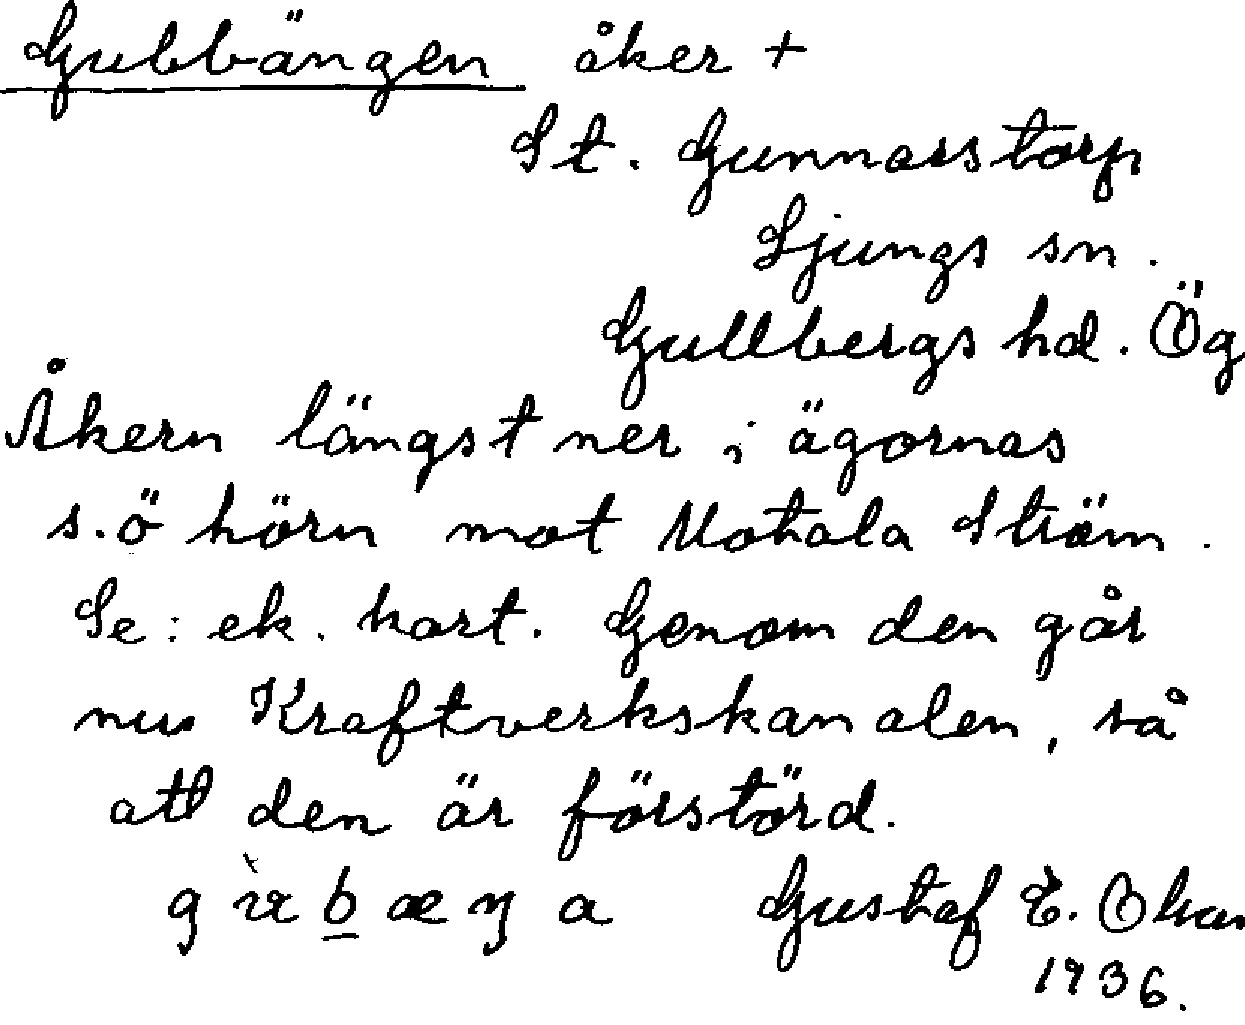 Gubbängen åker +
St. Gunnarstorp
Ljungs sn.
Gullbergs hd. Ög
Åkern längst ner i ägornas
s.ö hörn mot Motala Ström.
Se: ek. kart. Genom den går
nu Kraftverkskanalen, så
att den är förstörd.
Gustaf E.
1936.